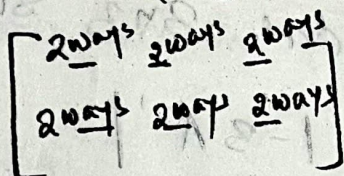 2ways 2ways 2ways
2ways 2ways 2ways